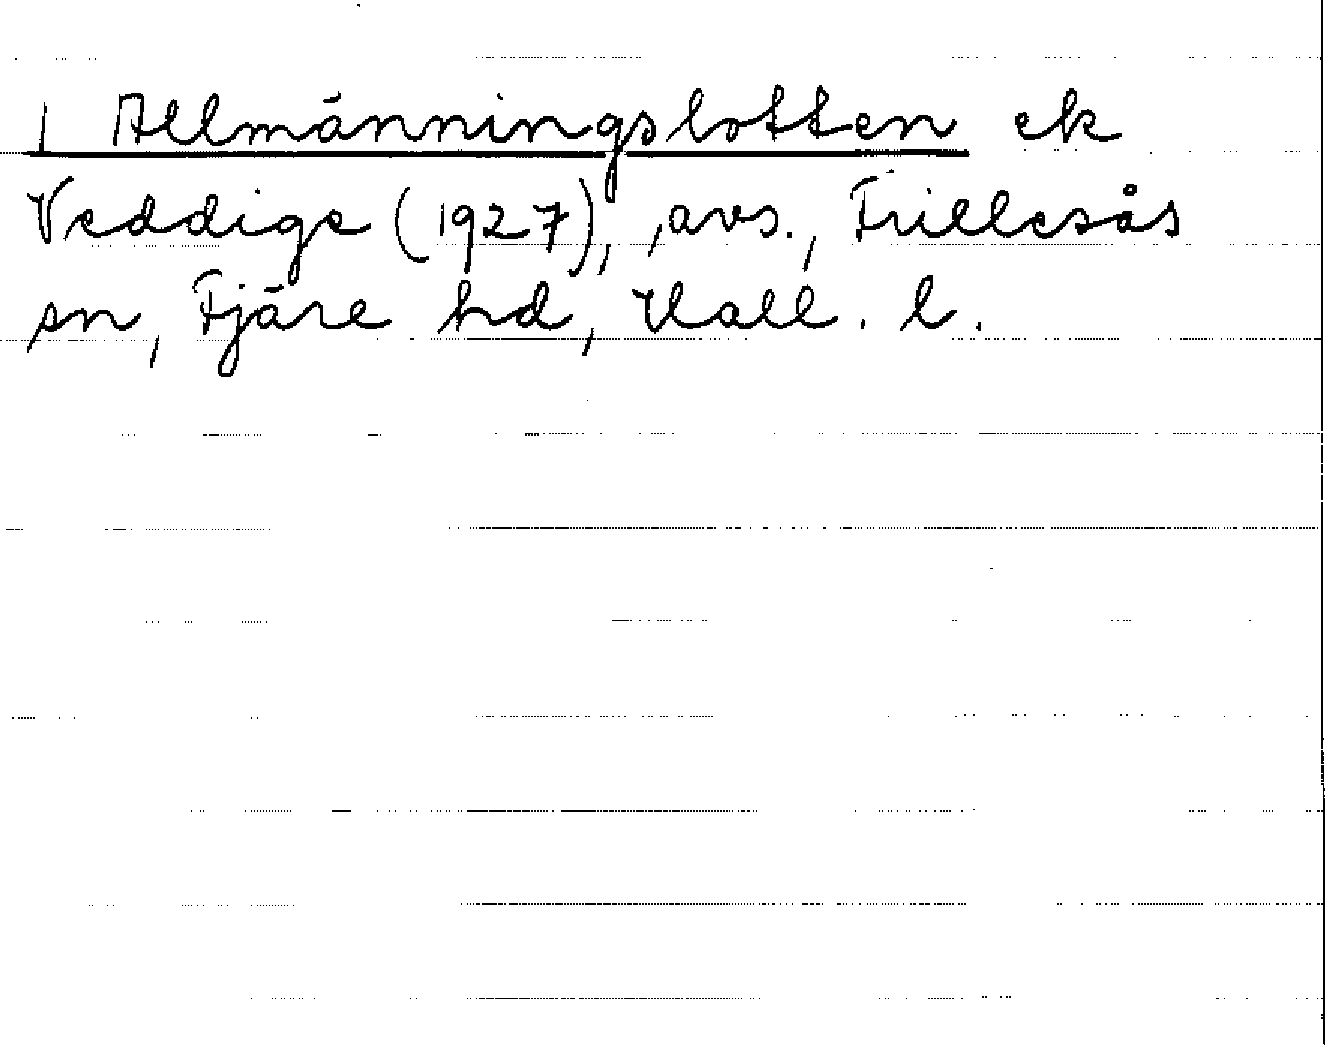 1 Allmänningslotten ek
Veddige (1927), , avs., Frillesås
sn, Fjäre hd, Hall. l.